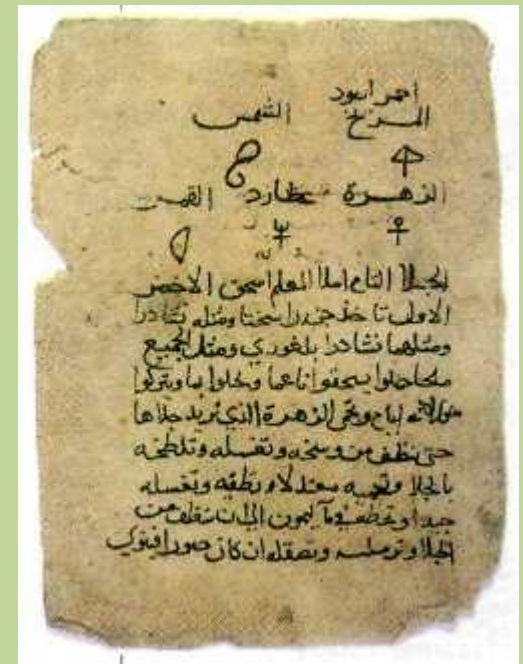 احمر اسود
المريخ الشمس
الزهرة عطارد القمر
الجلا التاع املا المعلم اسحق الاخضر
الاولى تاخذ جنزارا سختا ومثله نشادرا
ومثلهما نشادرا بلغوري ومثل الجميع
ملحا حلوا يسحقوا ناعما ويخلوا بما ويتركوا
ايام وتحمى الزهرة الذي تريد جلاها
حتى تنظف من وسخه وتغسله وتلطخه
بالجلا وتحميه معتدلا وتطفيه وتغسله
جيدا وتحطه في مآ ليمون الى ان تنظف من
الجلا وترمله وتصقله ان كان